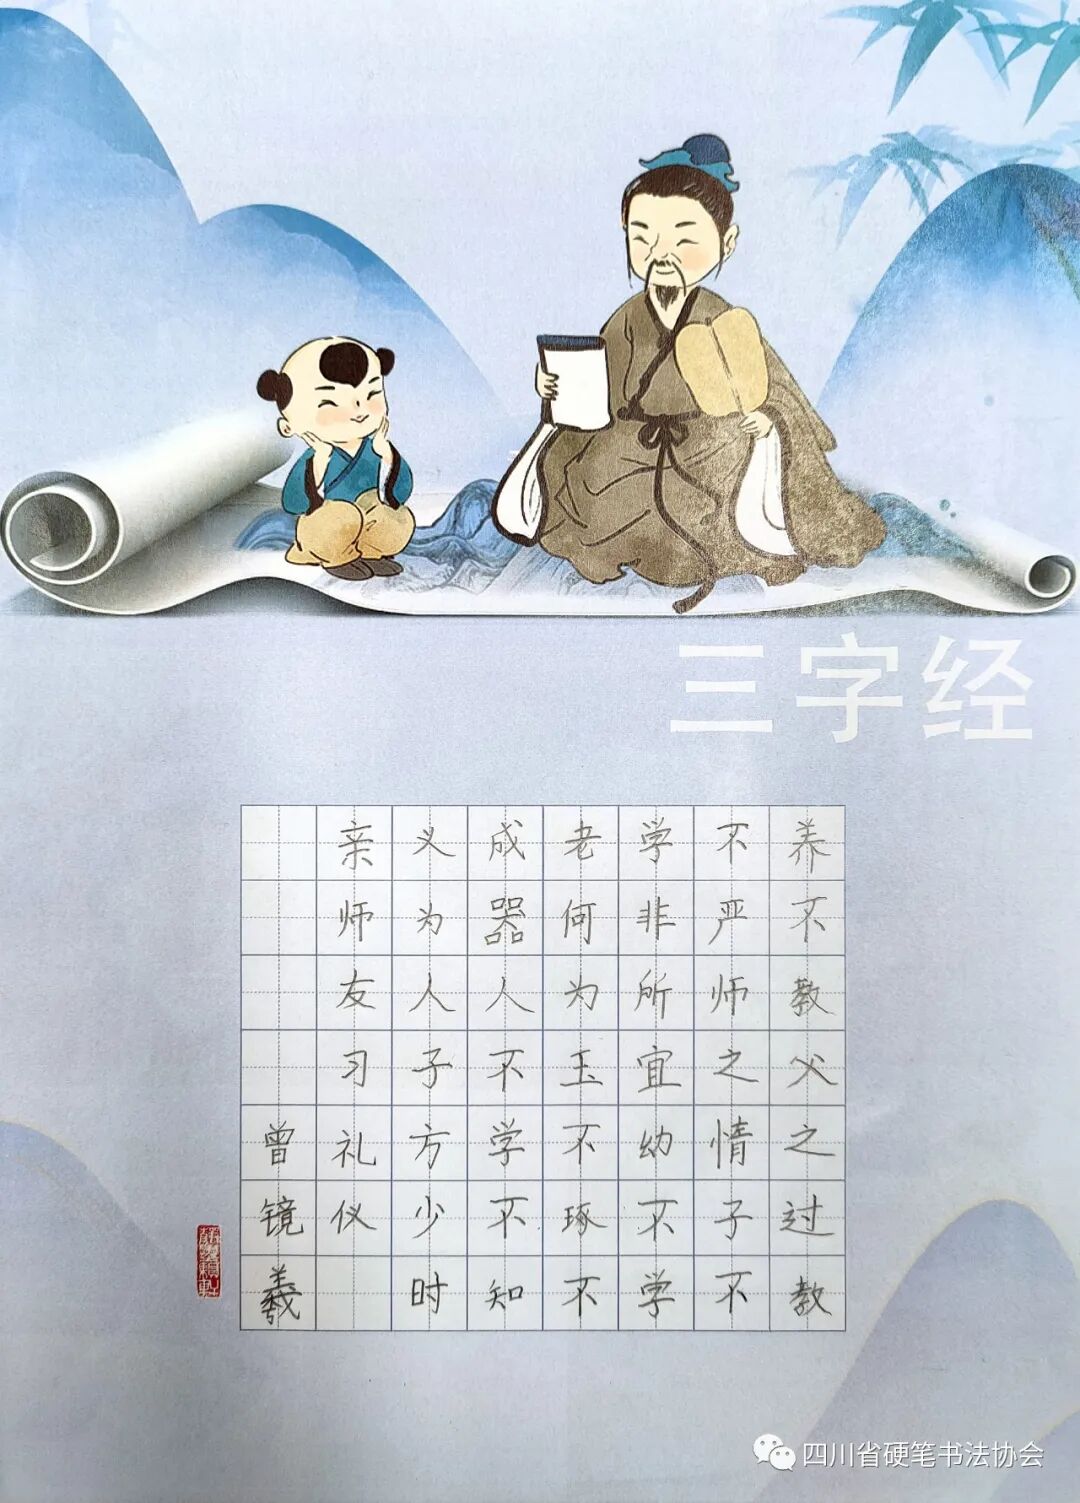 三字经
养不教父之过教
不严师之情子不
学非所宜幼不学
老何为玉不琢不
成器人不学不知
义为人子方少时
亲师友习礼仪
曾镜羲
四川省硬笔书法协会